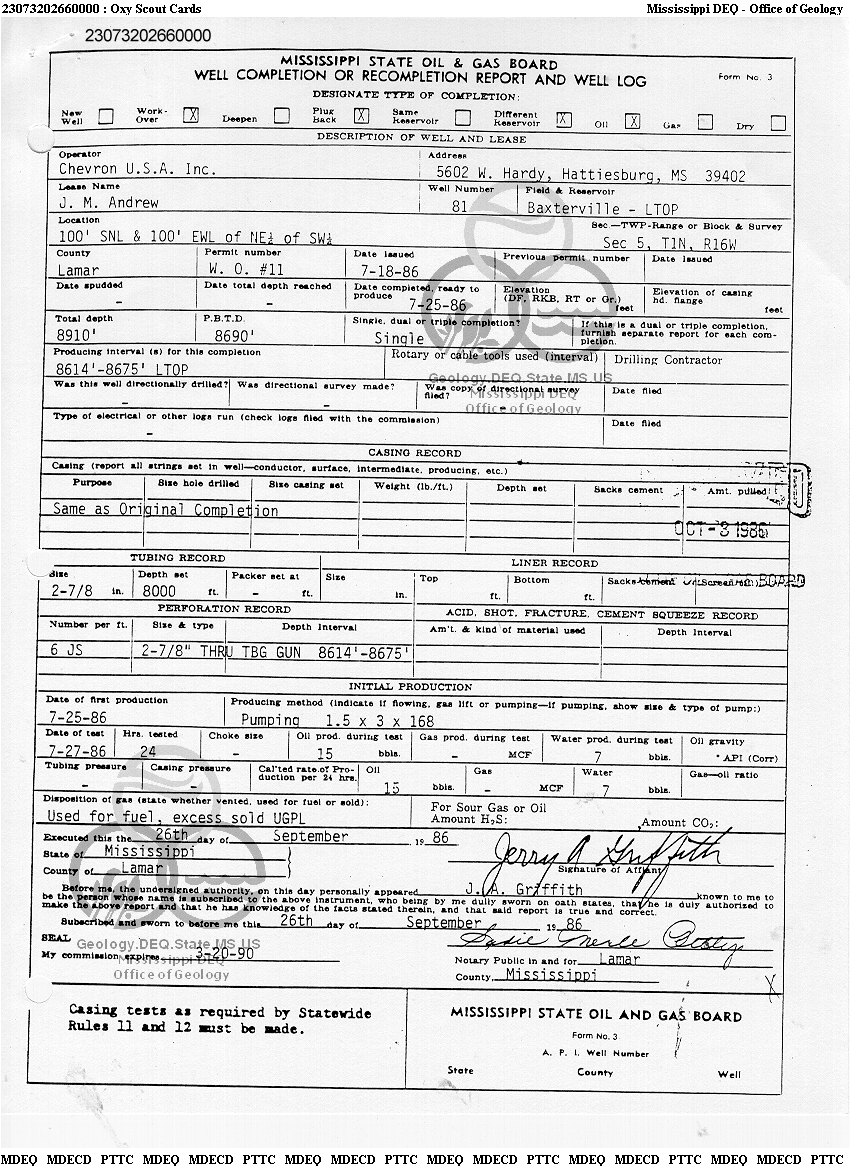 23073202660000 : Oxy Scout Cards Mississippi DEQ - Office of Geology
23073202660000
MISSISSIPPI STATE OIL & GAS BOARD
WELL COMPLETION OR RECOMPLETION REPORT AND WELL LOG Form No. 3
DESIGNATE TYPE OF COMPLETION:
New Well Work-Over X Deepen Plug Back X Same Reservoir Different Reservoir X Oil X Gas Dry
DESCRIPTION OF WELL AND LEASE
Operator Address
Chevron U.S.A. Inc. 5602 W. Hardy, Hattiesburg, MS 39402
Lease Name Well Number Field & Reservoir
J. M. Andrew 81 Baxterville - LTOP
Location Sec.—TWP-Range or Block & Survey
100' SNL & 100' EWL of NE¼ of SW¼ Sec 5, T1N, R16W
County Permit number Date Issued Previous permit number Date Issued
Lamar W. O. #11 7-18-86
Date spudded Date total depth reached Date completed, ready to produce Elevation (DF, RKB, RT or Gr.) Elevation of casing hd. flange
- - 7-25-86 feet feet
Total depth P.B.T.D. Single, dual or triple completion? If this is a dual or triple completion, furnish separate report for each completion.
8910' 8690' Single
Producing interval (s) for this completion Rotary or cable tools used (interval) Drilling Contractor
8614'-8675' LTOP
Geology.DEQ.State.MS.US
Was this well directionally drilled? Was directional survey made? Was copy of directional survey filed? Date filed
- - -
Mississippi DEQ
Office of Geology
Type of electrical or other logs run (check logs filed with the commission) Date filed
-
CASING RECORD
Casing (report all strings set in well—conductor, surface, intermediate, producing, etc.)
Purpose Size hole drilled Size casing set Weight (lb./ft.) Depth set Sacks cement Amt. pulled
Same as Original Completion
OCT -3 1986
TUBING RECORD LINER RECORD
Size Depth set Packer set at Size Top Bottom Sacks Cement Screen (ft.) BOARD
2-7/8 in. 8000 ft. - ft. in. ft. ft.
PERFORATION RECORD ACID, SHOT, FRACTURE, CEMENT SQUEEZE RECORD
Number per ft. Size & type Depth Interval Am't. & kind of material used Depth Interval
6 JS 2-7/8" THRU TBG GUN 8614'-8675'
INITIAL PRODUCTION
Date of first production Producing method (indicate if flowing, gas lift or pumping—if pumping, show size & type of pump:)
7-25-86 Pumping 1.5 x 3 x 168
Date of test Hrs. tested Choke size Oil prod. during test Gas prod. during test Water prod. during test Oil gravity
7-27-86 24 - 15 bbls. - MCF 7 bbls. ° API (Corr)
Tubing pressure Casing pressure Cal'ted rate of Production per 24 hrs. Oil Gas Water Gas—oil ratio
- - 15 bbls. - MCF 7 bbls.
Disposition of gas (state whether vented, used for fuel or sold): For Sour Gas or Oil
Used for fuel, excess sold UGPL Amount H₂S: Amount CO₂:
Executed this the 26th day of September 19 86
State of Mississippi Jerry A Griffith
County of Lamar Signature of Affiant
Before me, the undersigned authority, on this day personally appeared J. A. Griffith known to me to
be the person whose name is subscribed to the above instrument, who being by me dully sworn on oath states, that he is duly authorized to
make the above report and that he has knowledge of the facts stated therein, and that said report is true and correct.
Subscribed and sworn to before me this 26th day of September 19 86
SEAL Sadie Merle
Geology.DEQ.State.MS.US
My commission expires 3-20-90 Notary Public in and for Lamar
Mississippi DEQ
Office of Geology
County, Mississippi
Casing tests as required by Statewide
Rules 11 and 12 must be made.
MISSISSIPPI STATE OIL AND GAS BOARD
Form No. 3
A. P. I. Well Number
State County Well
MDEQ MDECD PTTC MDEQ MDECD PTTC MDEQ MDECD PTTC MDEQ MDECD PTTC MDEQ MDECD PTTC MDEQ MDECD PTTC